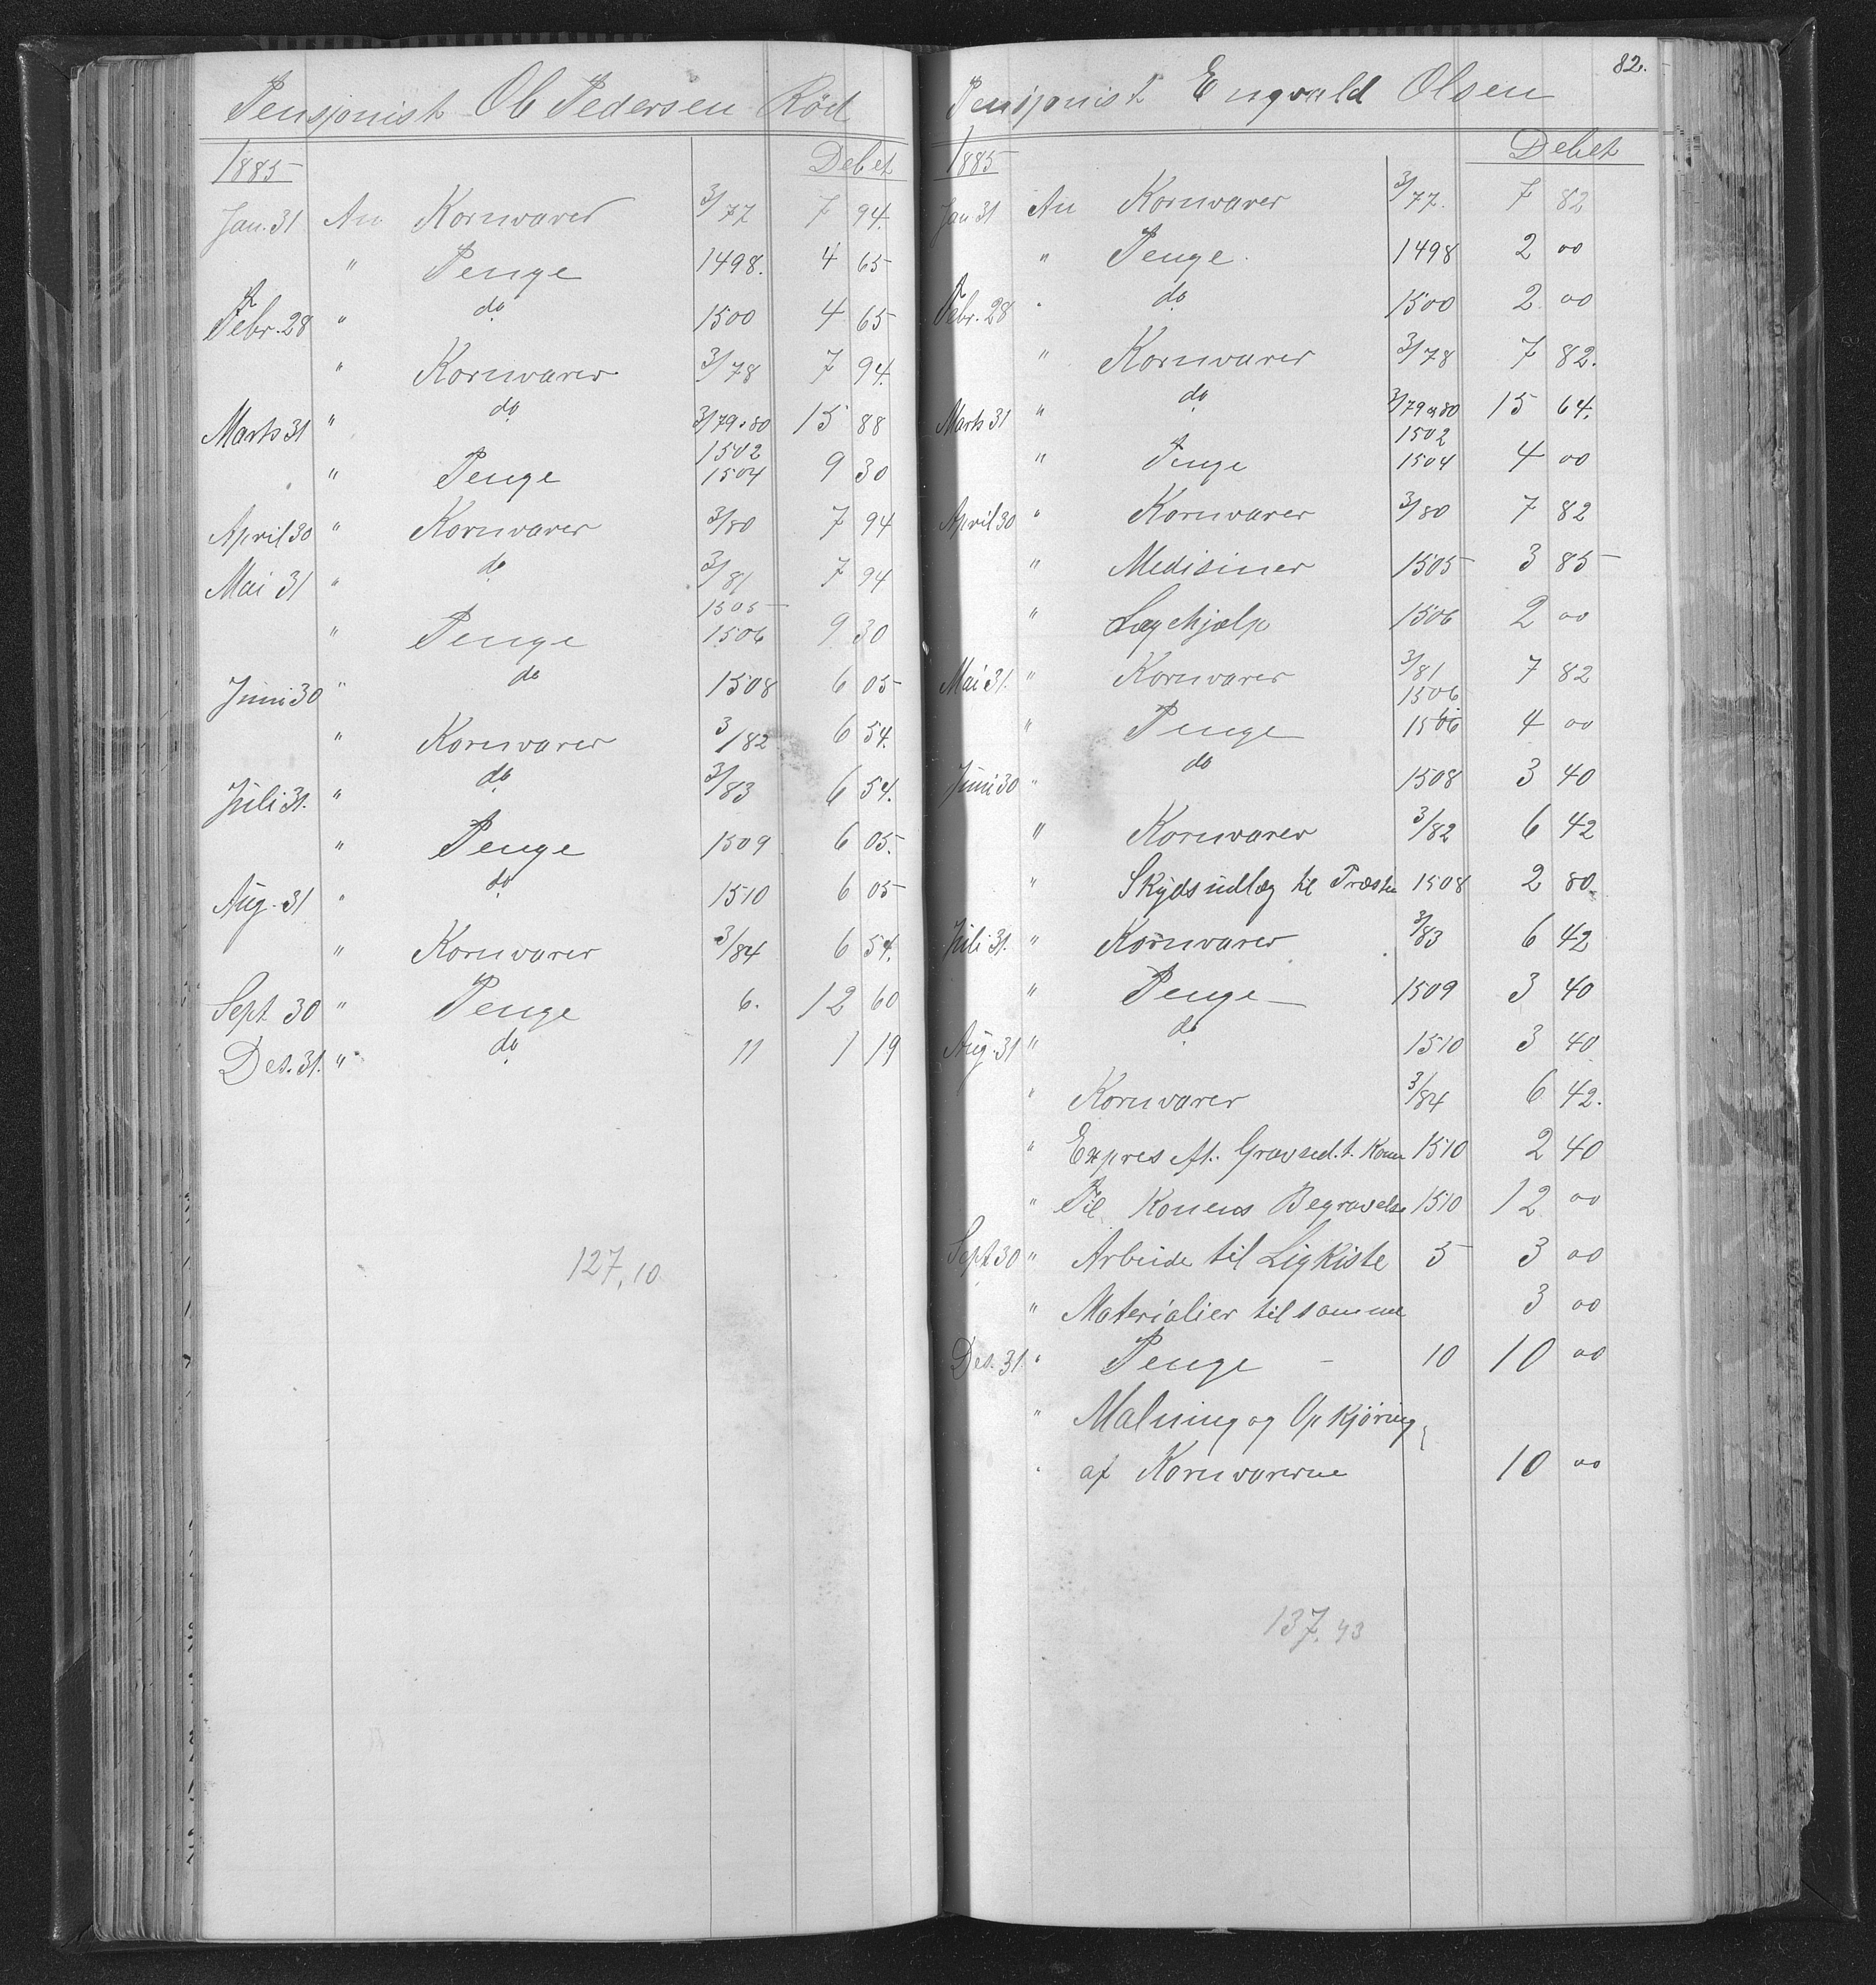 Pensjonist Ol Pedersen Röd
1885 Debet
Jan. 31 An Kornvarer 3/77 7 94.
" Penge 1498. 4 65
Febr. 28 " do 1500 4 65
" Kornvarer 3/78 7 94.
Marts 31 " do 3/79 . 80 15 88
1502
" Penge 1504 9 30
April 30 " Kornvarer 3/80 7 94
Mai 31 " do 3/81 7 94
1505
" Penge 1506 9 30
Juni 30 " do 1508 6 05
" Kornvarer 3/82 6 54.
Juli 31. " do 3/83 6 54.
" Penge 1509 6 05.
Aug. 31 " do 1510 6 05
" Kornvarer 3/84 6 54.
Sept 30 " Penge 6. 12 60
Des. 31. " do 11 1 19
127,10
82.
Pensjonist Engvald Olsen
1885 Debet
Jan 31 An Kornvarer 3/77. 7 82
" Penge. 1498 2 00
Febr. 28 " do 1500 2 00
" Kornvarer 3/78 7 82.
Marts 31 " do 3/79 og 80 15 64.
1502
" Penge 1504 4 00
April 30 " Kornvarer 3/80 7 82
" Medisiner 1505 3 85
" Lægehjælp 1506 2 00
Mai 31. " Kornvarer 3/81 7 82
1506
" Penge 1506 4 00
Juni 30 " do 1508 3 40
" Kornvarer 3/82 6 42
" Skydsudlæg til Præsten 1508 2 80
Juli 31. " Kornvarer 3/83 6 42
" Penge 1509 3 40
Aug. 31 " do 1510 3 40
" Kornvarer 3/84 6 42.
" Expres eft. Gravsed. t. Konen 1510 2 40
" Til Konens Begravelse 1510 12 00
Sept 30 " Arbeide til Ligkiste 5 3 00
" Materialier til samme 3 00
Des. 31. " Penge - 10 10 00
" Malning og Opkjøring
" af Kornvarerne 10 00
137.43